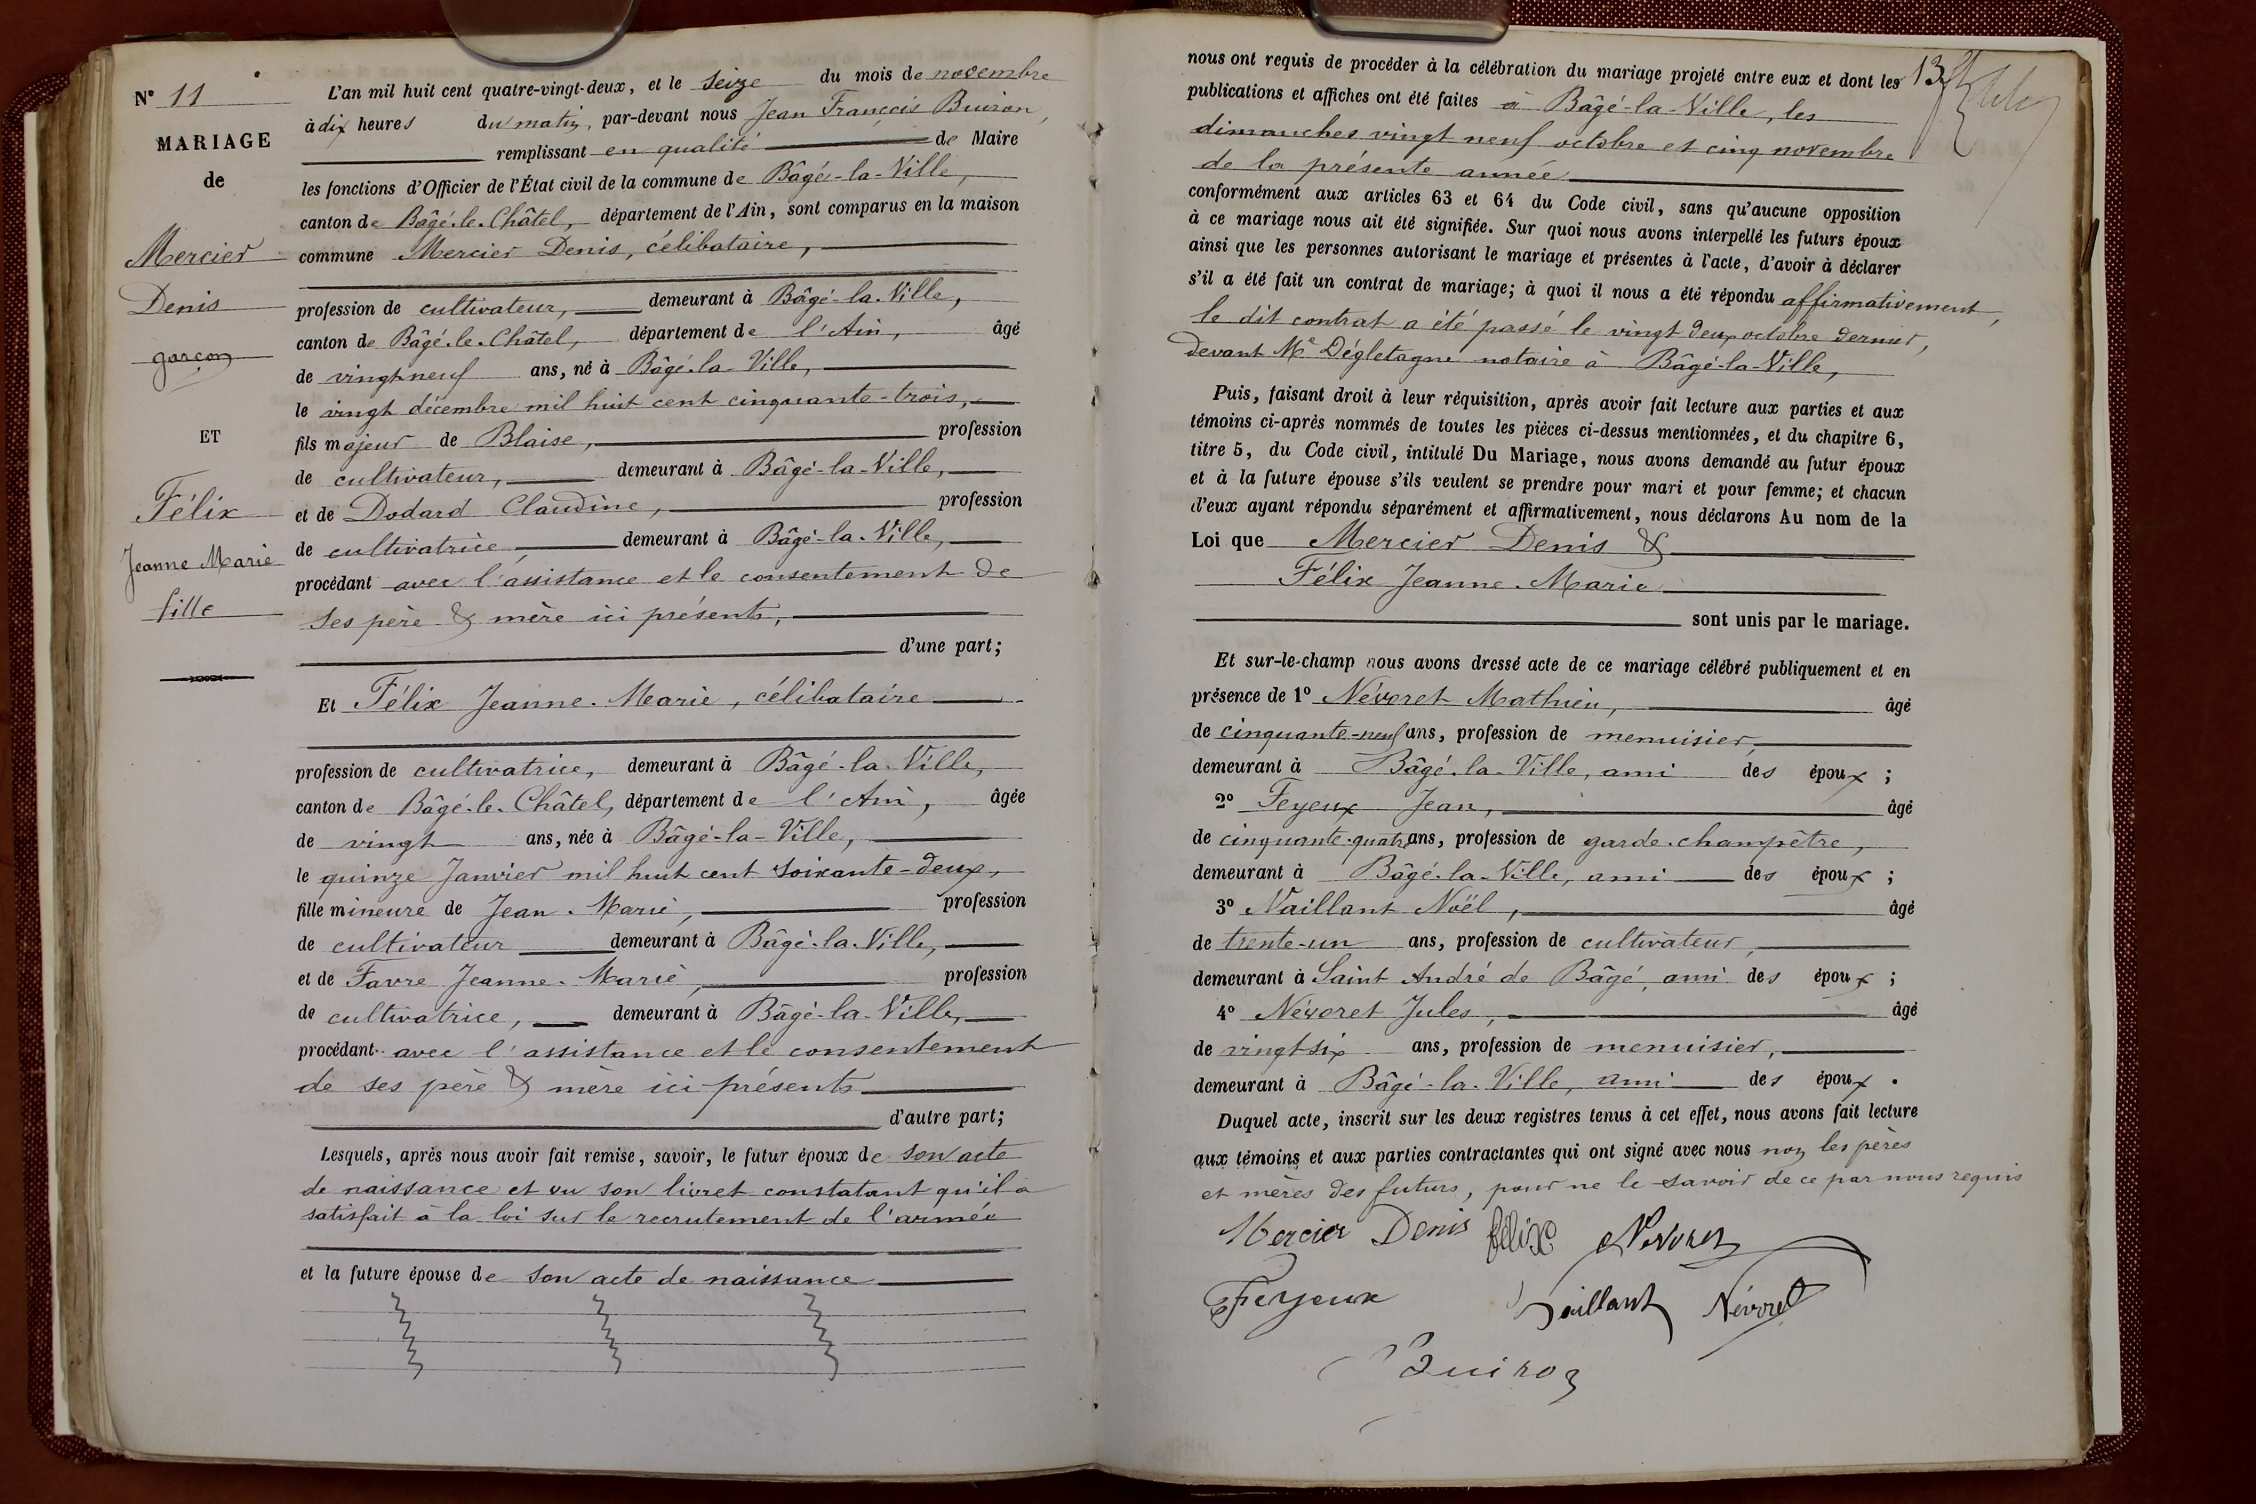 N° 11
MARIAGE
de
Mercier
Denis
garçon
ET
Félix
Jeanne Marie
fille
L'an mil huit cent quatre-vingt-deux, et le seize du mois de novembre
à dix heures du matin, par-devant nous Jean François Buiron,
remplissant en qualité de Maire
les fonctions d'Officier de l'État civil de la commune de Bâgé-la-Ville,
canton de Bâgé-le-Châtel, département de l'Ain, sont comparus en la maison
commune Mercier Denis, célibataire,
profession de cultivateur, demeurant à Bâgé-la-Ville,
canton de Bâgé-le-Châtel, département de l'Ain, âgé
de vingt neuf ans, né à Bâgé-la-Ville,
le vingt décembre mil huit cent cinquante-trois,
fils majeur de Blaise, profession
de cultivateur, demeurant à Bâgé-la-Ville,
et de Dodard Claudine, profession
de cultivatrice, demeurant à Bâgé-la-Ville,
procédant avec l'assistance et le consentement de
ses père & mère ici présents,
d'une part;
Et Félix Jeanne-Marie, célibataire
profession de cultivatrice, demeurant à Bâgé-la-Ville,
canton de Bâgé-le-Châtel, département de l'Ain, âgée
de vingt ans, née à Bâgé-la-Ville,
le quinze Janvier mil huit cent soixante-deux,
fille mineure de Jean-Marie, profession
de cultivateur demeurant à Bâgé-la-Ville,
et de Favre Jeanne-Marie, profession
de cultivatrice, demeurant à Bâgé-la-Ville,
procédant avec l'assistance et le consentement
de ses père & mère ici présents
d'autre part;
Lesquels, après nous avoir fait remise, savoir, le futur époux de son acte
de naissance et vu son livret constatant qu'il a
satisfait à la loi sur le recrutement de l'armée
et la future épouse de son acte de naissance
nous ont requis de procéder à la célébration du mariage projeté entre eux et dont les
publications et affiches ont été faites à Bâgé-la-Ville, les
dimanches vingt neuf octobre et cinq novembre
de la présente année
conformément aux articles 63 et 64 du Code civil, sans qu'aucune opposition
à ce mariage nous ait été signifiée. Sur quoi nous avons interpellé les futurs époux
ainsi que les personnes autorisant le mariage et présentes à l'acte, d'avoir à déclarer
s'il a été fait un contrat de mariage; à quoi il nous a été répondu affirmativement,
le dit contrat a été passé le vingt deux octobre dernier,
devant Me Dégletagne notaire à Bâgé-la-Ville,
Puis, faisant droit à leur réquisition, après avoir fait lecture aux parties et aux
témoins ci-après nommés de toutes les pièces ci-dessus mentionnées, et du chapitre 6,
titre 5, du Code civil, intitulé Du Mariage, nous avons demandé au futur époux
et à la future épouse s'ils veulent se prendre pour mari et pour femme; et chacun
d'eux ayant répondu séparément et affirmativement, nous déclarons Au nom de la
Loi que Mercier Denis &
Félix Jeanne-Marie
sont unis par le mariage.
Et sur-le-champ nous avons dressé acte de ce mariage célébré publiquement et en
présence de 1° Névoret Mathieu, âgé
de cinquante-neuf ans, profession de menuisier,
demeurant à Bâgé-la-Ville, ami des époux;
2° Feyeux Jean, âgé
de cinquante-quatre ans, profession de garde-champêtre,
demeurant à Bâgé-la-Ville, ami des époux;
3° Vaillant Noël, âgé
de trente-un ans, profession de cultivateur,
demeurant à Saint André de Bâgé, ami des époux;
4° Névoret Jules, âgé
de vingt-six ans, profession de menuisier,
demeurant à Bâgé-la-Ville, ami des époux.
Duquel acte, inscrit sur les deux registres tenus à cet effet, nous avons fait lecture
aux témoins et aux parties contractantes qui ont signé avec nous non les pères
et mères des futurs, pour ne le savoir de ce par nous requis
Mercier Denis félix Névoret
Feyeux Vaillant Névoret
Buiron